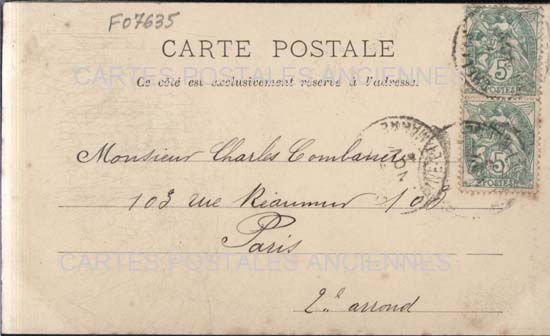 F07635
CARTE POSTALE
CARTES POSTALES ANCIENNES
Ce côté est exclusivement réservé à l'adresse.
5
POSTES
5
POSTES
Monsieur Charles
103 rue Réaumur 103
Paris
CARTES POSTALES ANCIENNES
2e arrond